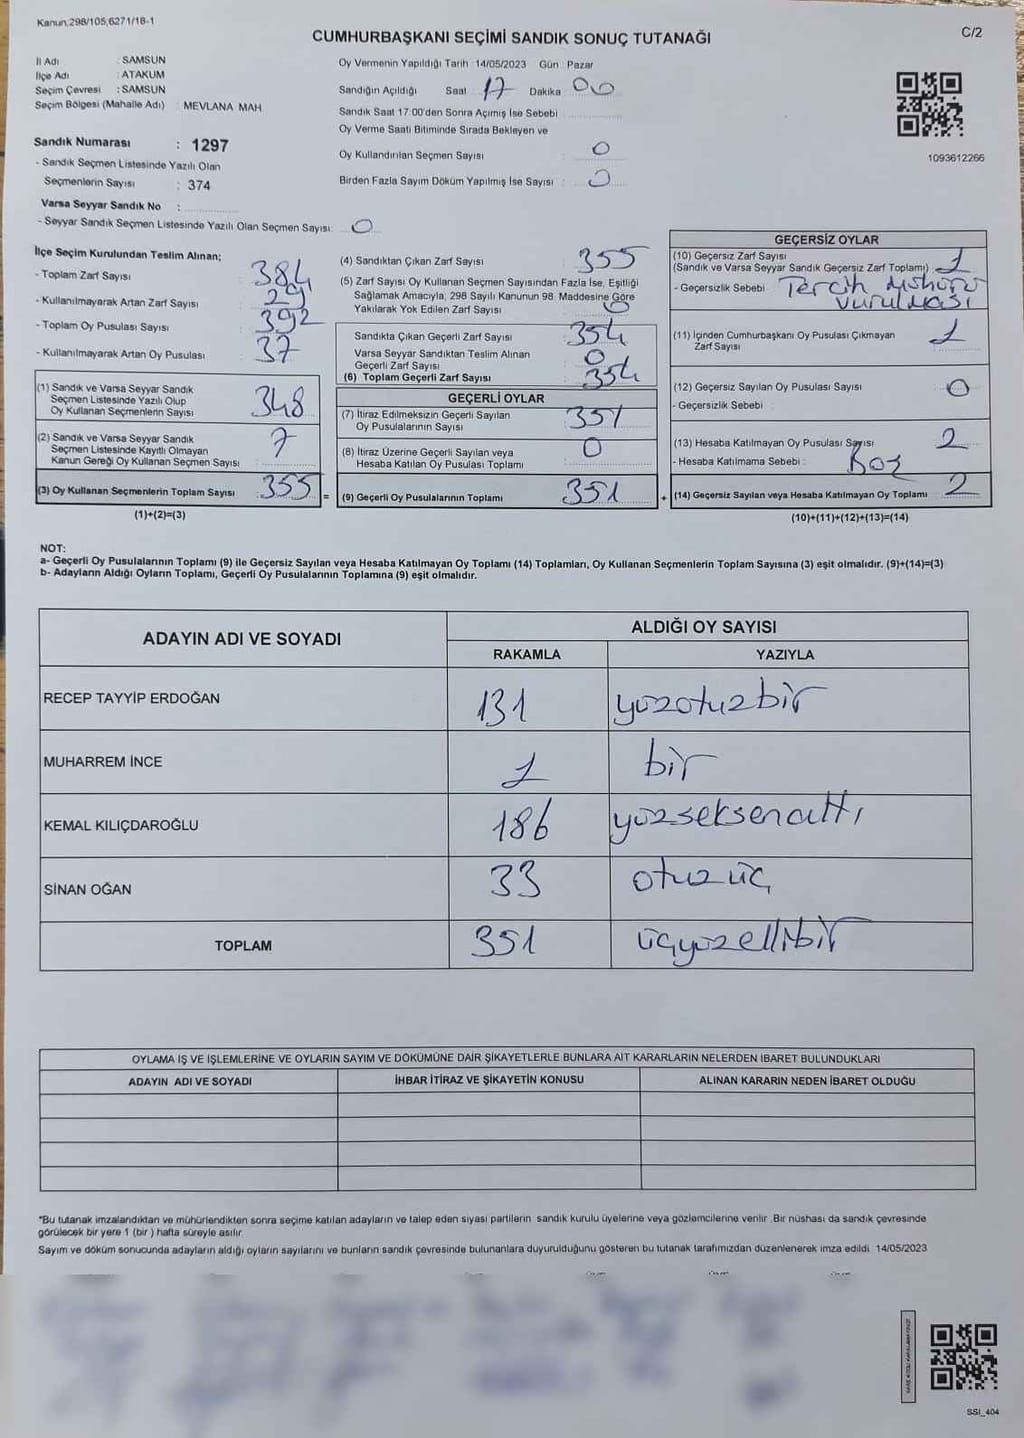 Kanun:298/105,6271/16-1
C/2
CUMHURBAŞKANI SEÇİMİ SANDIK SONUÇ TUTANAĞI
İl Adı : SAMSUN
İlçe Adı : ATAKUM
Seçim Çevresi : SAMSUN
Seçim Bölgesi (Mahalle Adı) : MEVLANA MAH.
Sandık Numarası : 1297
- Sandık Seçmen Listesinde Yazılı Olan
Seçmenlerin Sayısı : 374
Varsa Seyyar Sandık No :
- Seyyar Sandık Seçmen Listesinde Yazılı Olan Seçmen Sayısı: 0
Oy Vermenin Yapıldığı Tarih : 14/05/2023 Gün : Pazar
Sandığın Açıldığı Saat 17 Dakika 00
Sandık Saat 17:00'den Sonra Açımış İse Sebebi :
Oy Verme Saati Bitiminde Sırada Bekleyen ve
Oy Kullandırılan Seçmen Sayısı : 0
Birden Fazla Sayım Döküm Yapılmış İse Sayısı : 0
1093612266
İlçe Seçim Kurulundan Teslim Alınan;
- Toplam Zarf Sayısı : 384
- Kullanılmayarak Artan Zarf Sayısı : 29
- Toplam Oy Pusulası Sayısı : 392
- Kullanılmayarak Artan Oy Pusulası : 37
(1) Sandık ve Varsa Seyyar Sandık
Seçmen Listesinde Yazılı Olup
Oy Kullanan Seçmenlerin Sayısı : 348
(2) Sandık ve Varsa Seyyar Sandık
Seçmen Listesinde Kayıtlı Olmayan
Kanun Gereği Oy Kullanan Seçmen Sayısı : 7
(3) Oy Kullanan Seçmenlerin Toplam Sayısı : 355 =
(1)+(2)=(3)
(4) Sandıktan Çıkan Zarf Sayısı : 355
(5) Zarf Sayısı Oy Kullanan Seçmen Sayısından Fazla İse, Eşitliği
Sağlamak Amacıyla, 298 Sayılı Kanunun 98. Maddesine Göre
Yakılarak Yok Edilen Zarf Sayısı : 0
Sandıkta Çıkan Geçerli Zarf Sayısı : 354
Varsa Seyyar Sandıktan Teslim Alınan
Geçerli Zarf Sayısı : 0
(6) Toplam Geçerli Zarf Sayısı : 354
GEÇERLİ OYLAR
(7) İtiraz Edilmeksizin Geçerli Sayılan
Oy Pusulalarının Sayısı : 351
(8) İtiraz Üzerine Geçerli Sayılan veya
Hesaba Katılan Oy Pusulası Toplamı : 0
(9) Geçerli Oy Pusulalarının Toplamı : 351 +
GEÇERSİZ OYLAR
(10) Geçersiz Zarf Sayısı
(Sandık ve Varsa Seyyar Sandık Geçersiz Zarf Toplamı) : 1
- Geçersizlik Sebebi : Tercih mührü
vurulması
(11) İçinden Cumhurbaşkanı Oy Pusulası Çıkmayan
Zarf Sayısı : 1
(12) Geçersiz Sayılan Oy Pusulası Sayısı : 0
- Geçersizlik Sebebi :
(13) Hesaba Katılmayan Oy Pusulası Sayısı : 2
- Hesaba Katılmama Sebebi : Boş
(14) Geçersiz Sayılan veya Hesaba Katılmayan Oy Toplamı : 2
(10)+(11)+(12)+(13)=(14)
NOT:
a- Geçerli Oy Pusulalarının Toplamı (9) ile Geçersiz Sayılan veya Hesaba Katılmayan Oy Toplamı (14) Toplamları, Oy Kullanan Seçmenlerin Toplam Sayısına (3) eşit olmalıdır. (9)+(14)=(3)
b- Adayların Aldığı Oyların Toplamı, Geçerli Oy Pusulalarının Toplamına (9) eşit olmalıdır.
ADAYIN ADI VE SOYADI ALDIĞI OY SAYISI
RAKAMLA YAZIYLA
RECEP TAYYİP ERDOĞAN 131 yüzotuzbir
MUHARREM İNCE 1 bir
KEMAL KILIÇDAROĞLU 186 yüzseksenaltı
SİNAN OĞAN 33 otuzüç
TOPLAM 351 üçyüzellibir
OYLAMA İŞ VE İŞLEMLERİNE VE OYLARIN SAYIM VE DÖKÜMÜNE DAİR ŞİKAYETLERLE BUNLARA AİT KARARLARIN NELERDEN İBARET BULUNDUKLARI
ADAYIN ADI VE SOYADI İHBAR İTİRAZ VE ŞİKAYETİN KONUSU ALINAN KARARIN NEDEN İBARET OLDUĞU
"Bu tutanak imzalandıktan ve mühürlendikten sonra seçime katılan adayların ve talep eden siyasi partilerin sandık kurulu üyelerine veya gözlemcilerine verilir. Bir nüshası da sandık çevresinde
görülecek bir yere 1 (bir ) hafta süreyle asılır.
Sayım ve döküm sonucunda adayların aldığı oyların sayılarını ve bunların sandık çevresinde bulunanlara duyurulduğunu gösteren bu tutanak tarafımızdan düzenlenerek imza edildi. 14/05/2023
SSI_404